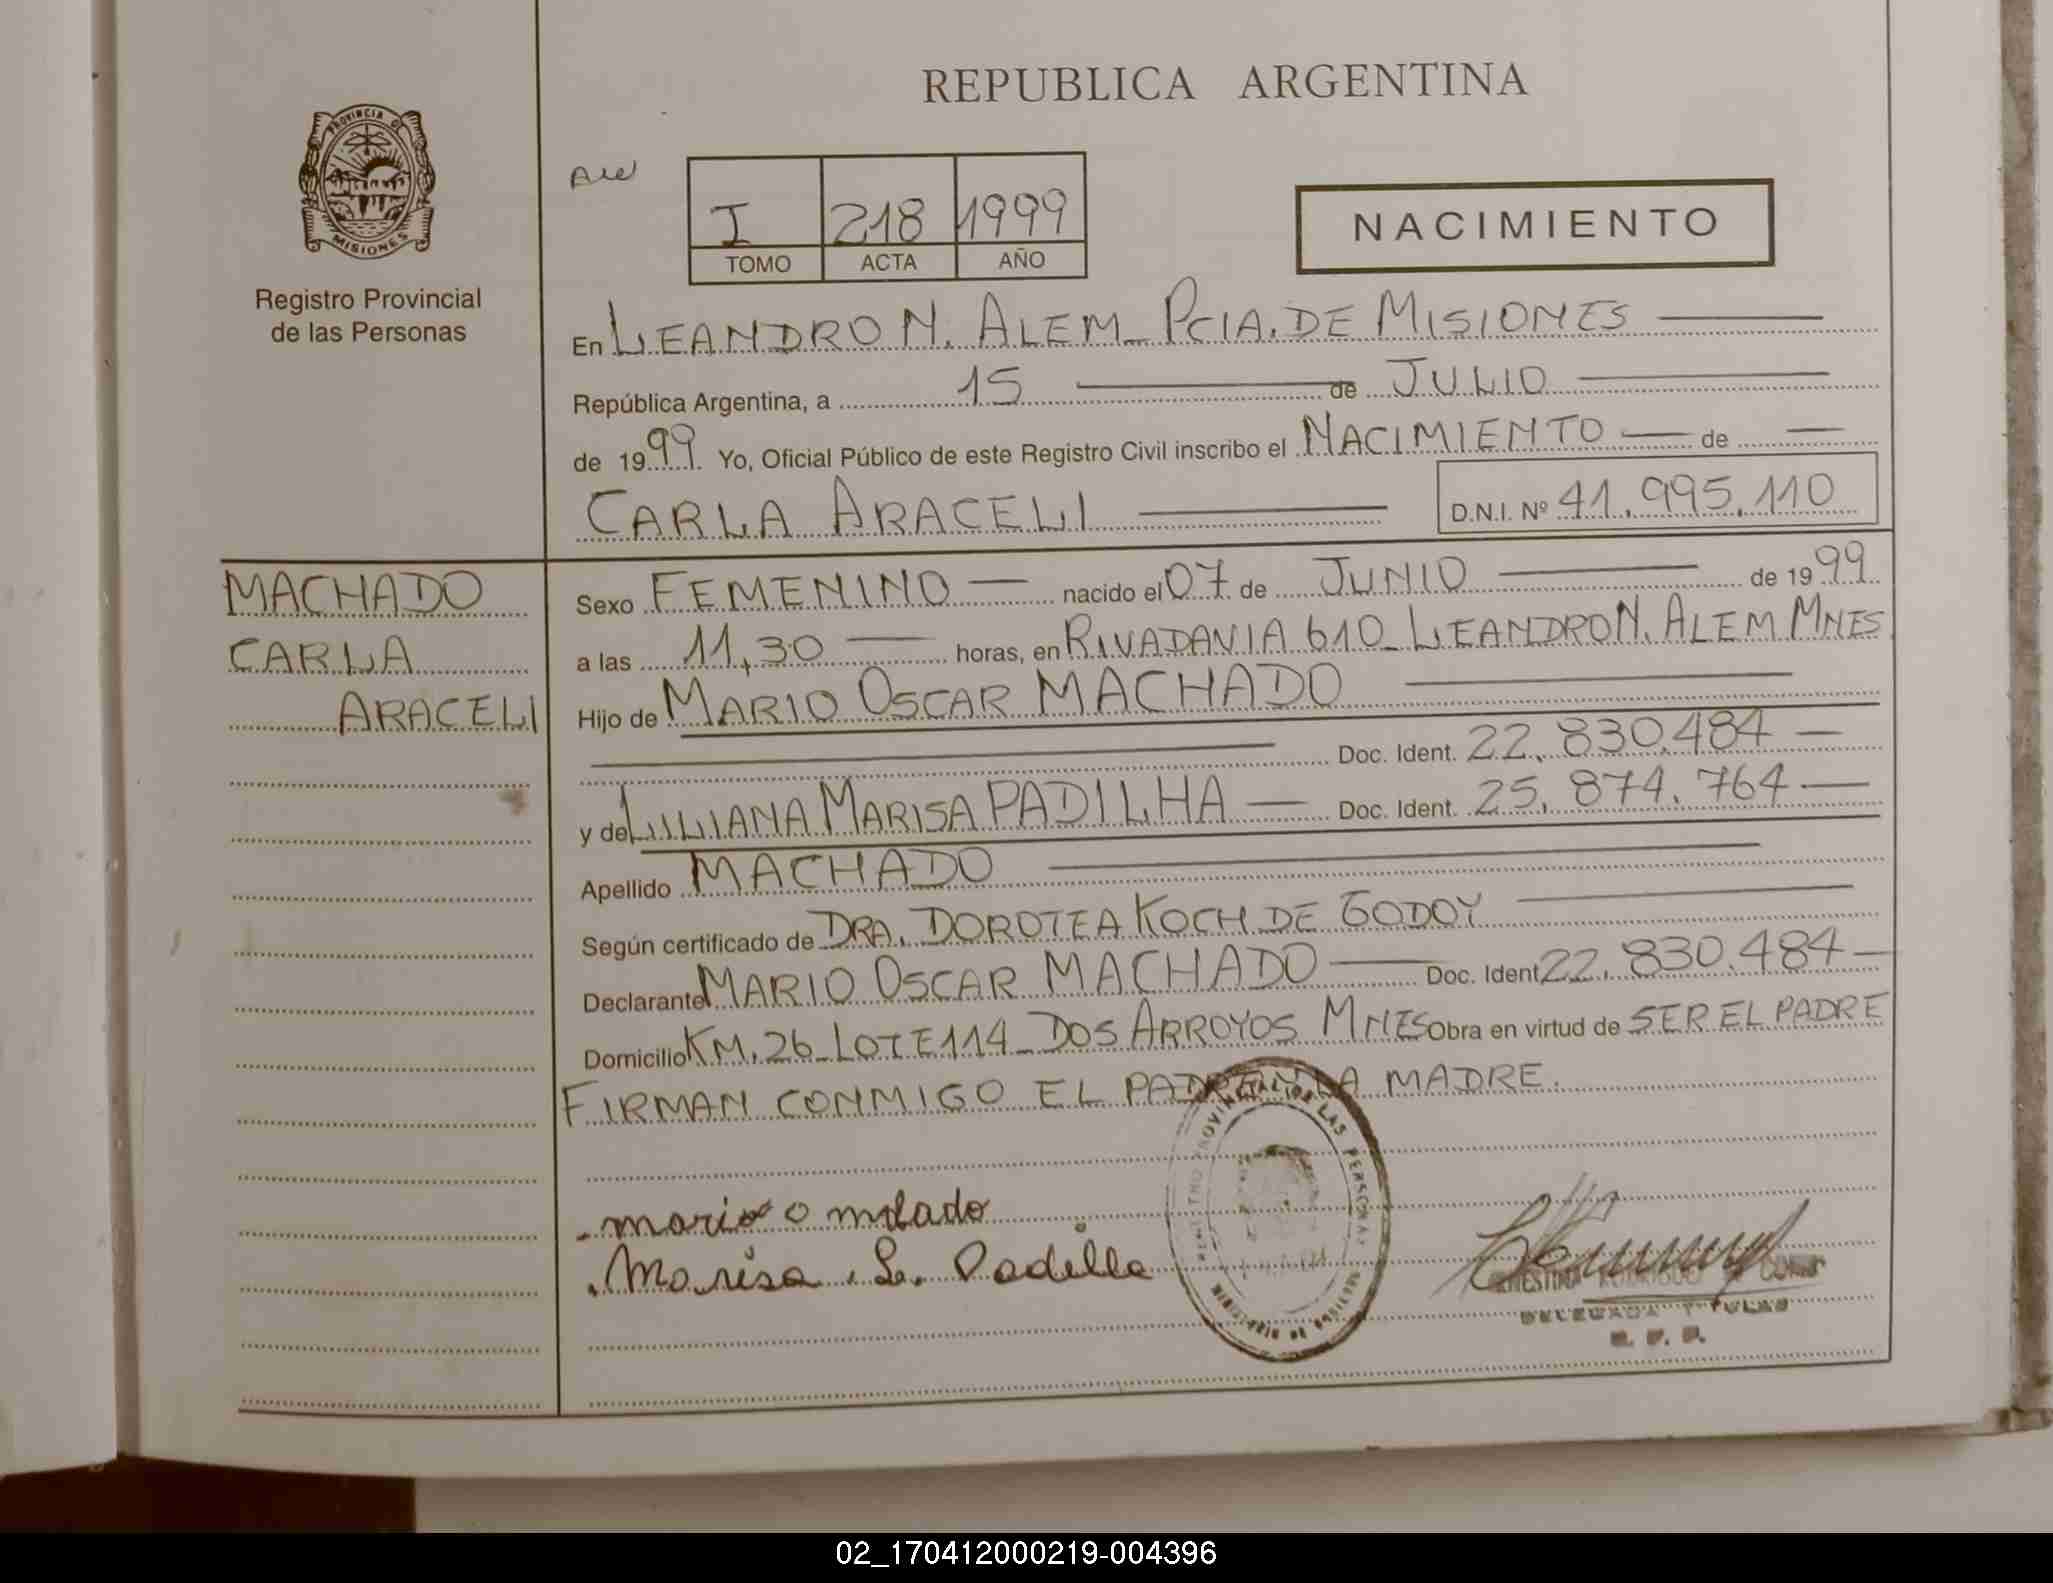 REPUBLICA ARGENTINA
PROVINCIA DE
MISIONES
Registro Provincial
de las Personas
I 218 1999
TOMO ACTA AÑO
NACIMIENTO
En LEANDRO N. ALEM_ PCIA. DE MISIONES
República Argentina, a 15 de JULIO
de 1999 Yo, Oficial Público de este Registro Civil inscribo el NACIMIENTO de
CARLA ARACELI D.N.I. Nº 41.995.110
MACHADO
CARLA
ARACELI
Sexo FEMENINO nacido el 07 de JUNIO de 1999
a las 11,30 horas, en RIVADAVIA 610_ LEANDRO N. ALEM MNES
Hijo de MARIO OSCAR MACHADO
Doc. Ident. 22.830.484
y de LILIANA MARISA PADILHA Doc. Ident. 25.874.764
Apellido MACHADO
Según certificado de DRA. DOROTEA KOCH DE GODOY
Declarante MARIO OSCAR MACHADO Doc. Ident 22.830.484
Domicilio KM.26_LOTE114_DOS ARROYOS MNES Obra en virtud de SER EL PADRE
FIRMAN CONMIGO EL PADRE Y LA MADRE.
mario o
Marisa L. Padilla
REGISTRO PROVINCIAL DE LAS PERSONAS
DELEGADA TITULAR
R. P. P.
02_170412000219-004396